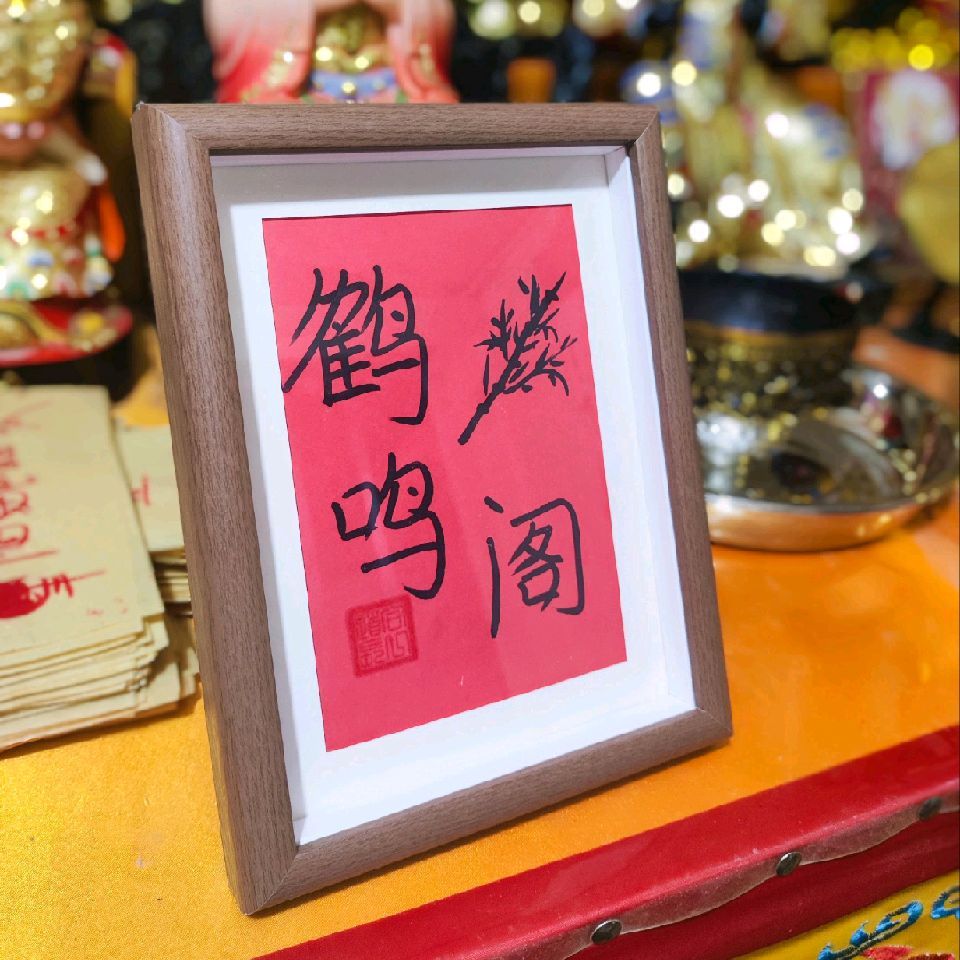 鹤鸣
阁